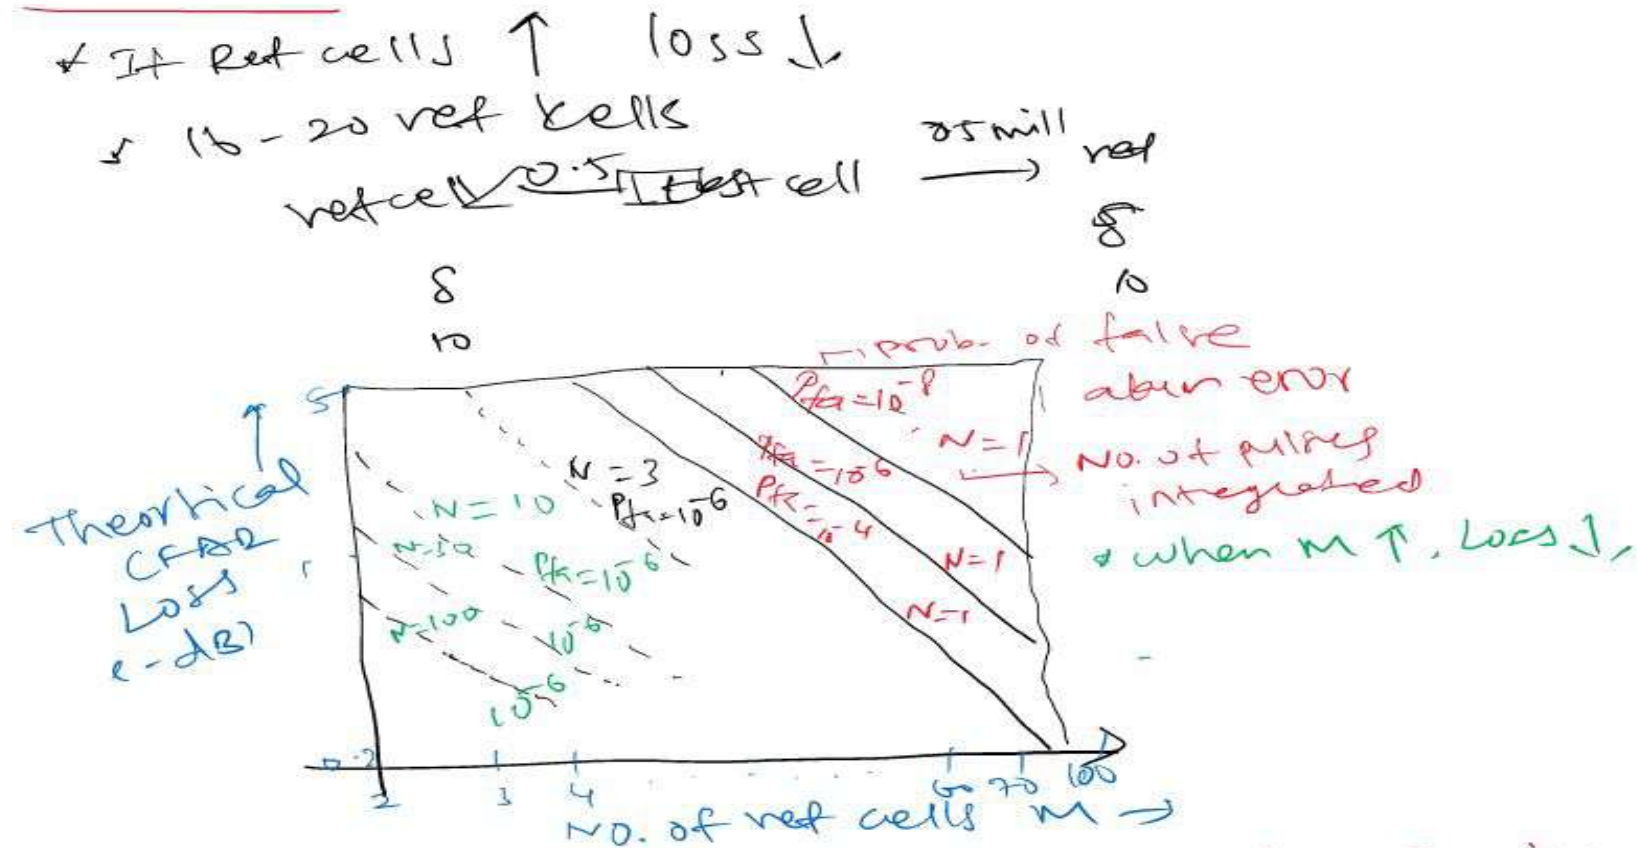 * If Ref cells ↑ loss ↓
* 16-20 ref cells
ref cell 0.5 test cell → ref
8
10
8
10
prob. of false
alarm error
Pfa = 10^-8
N = 1
No. of pulses
integrated
Pfa = 10^-6
N = 1
Pfa = 10^-4
N = 1
N = 3
Pfa = 10^-6
N = 10
Pfa = 10^-6
10^-6
N = 100
10^-6
* when M ↑, Loss ↓
5
Theortical
CFAR
Loss
(-dB)
0.2
2 3 4 60 70 100
NO. of ref cells M →